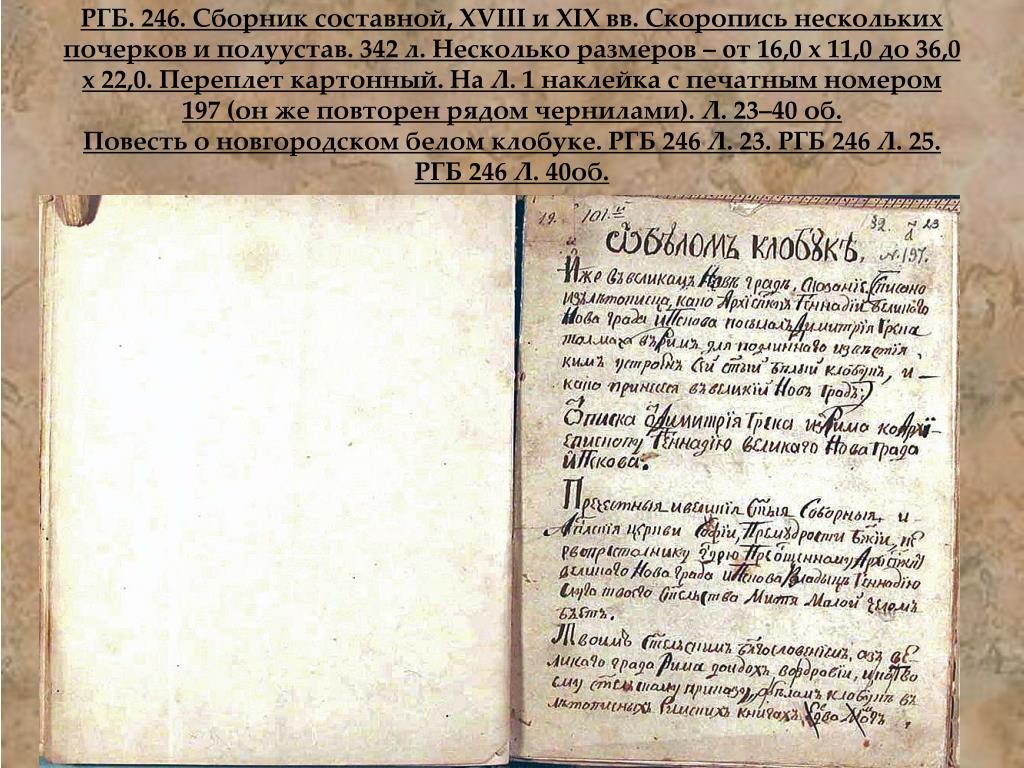 РГБ. 246. Сборник составной, XVIII и XIX вв. Скоропись нескольких
почерков и полуустав. 342 л. Несколько размеров – от 16,0 х 11,0 до 36,0
х 22,0. Переплет картонный. На Л. 1 наклейка с печатным номером
197 (он же повторен рядом чернилами). Л. 23–40 об.
Повесть о новгородском белом клобуке. РГБ 246 Л. 23. РГБ 246 Л. 25.
РГБ 246 Л. 40об.
19. 101. 32. 23
№197.
Ѡ бѣломъ клобукѣ.
Иже въ великомъ Новѣ градѣ, Списано
изълѣтописца, како Архіепкпъ Геннадіи великого
Нова града иПскова посылалъ Димитрія Грека
толмача въ Римъ для подлиннаго извѣстія
кимъ устроенъ сей стый бѣлый клобукъ, и
како принесся въ великій Новъ Градъ:
Ѿписка Димитрія Грека изРима ко Архї-
епископу Геннадію великаго Нова Града
иПскова.
Пречестныя ивеликія Стыя Соборныя, и
Апльскія церкви Софіи, Премудрости Бжіи, пе
рвопрестолнику Преѡсщенному
великаго Нова града иПскова Владыцѣ Геннадію
слуга твоего Стельства Митя Малой челомъ
бьетъ.
Твоимъ бгословеніемъ, азъ ве-
ликаго града Рима доидохъ воздравіи, и потво
ему приказу, клобукъ въ
лѣтописныхъ Римскихъ книгахъ